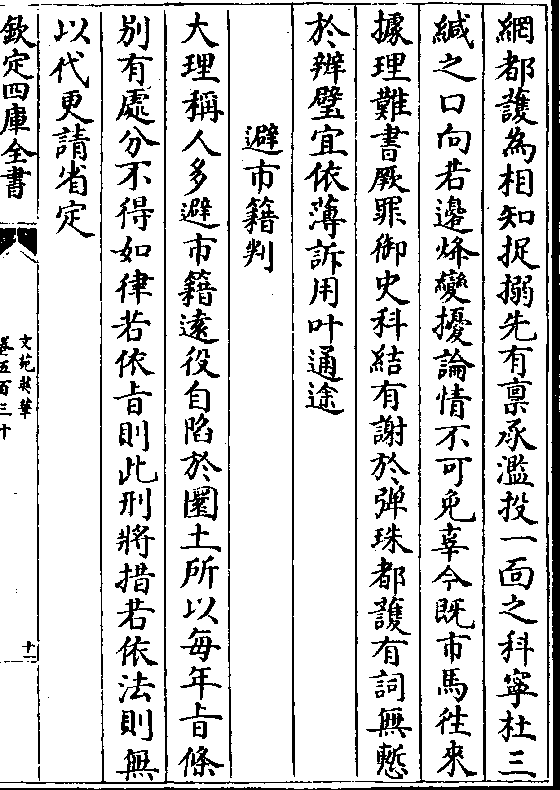 網都護為相知捉搦先有稟承濫投一面之科寧杜三
緘之口向若邊烽變擾論情不可免辜今既市馬徃來
據理難書厥罪御史科結有謝於弾珠都護有詞無慙
於辨璧宜依薄訴用叶通途
避市籍判
大理稱人多避市籍逺役自陷於圜土所以每年㫖條
别有處分不得如律若依㫖則此刑將措若依法則無
以代更請省定
欽定四庫全書
文苑英華
卷五百三十
十一